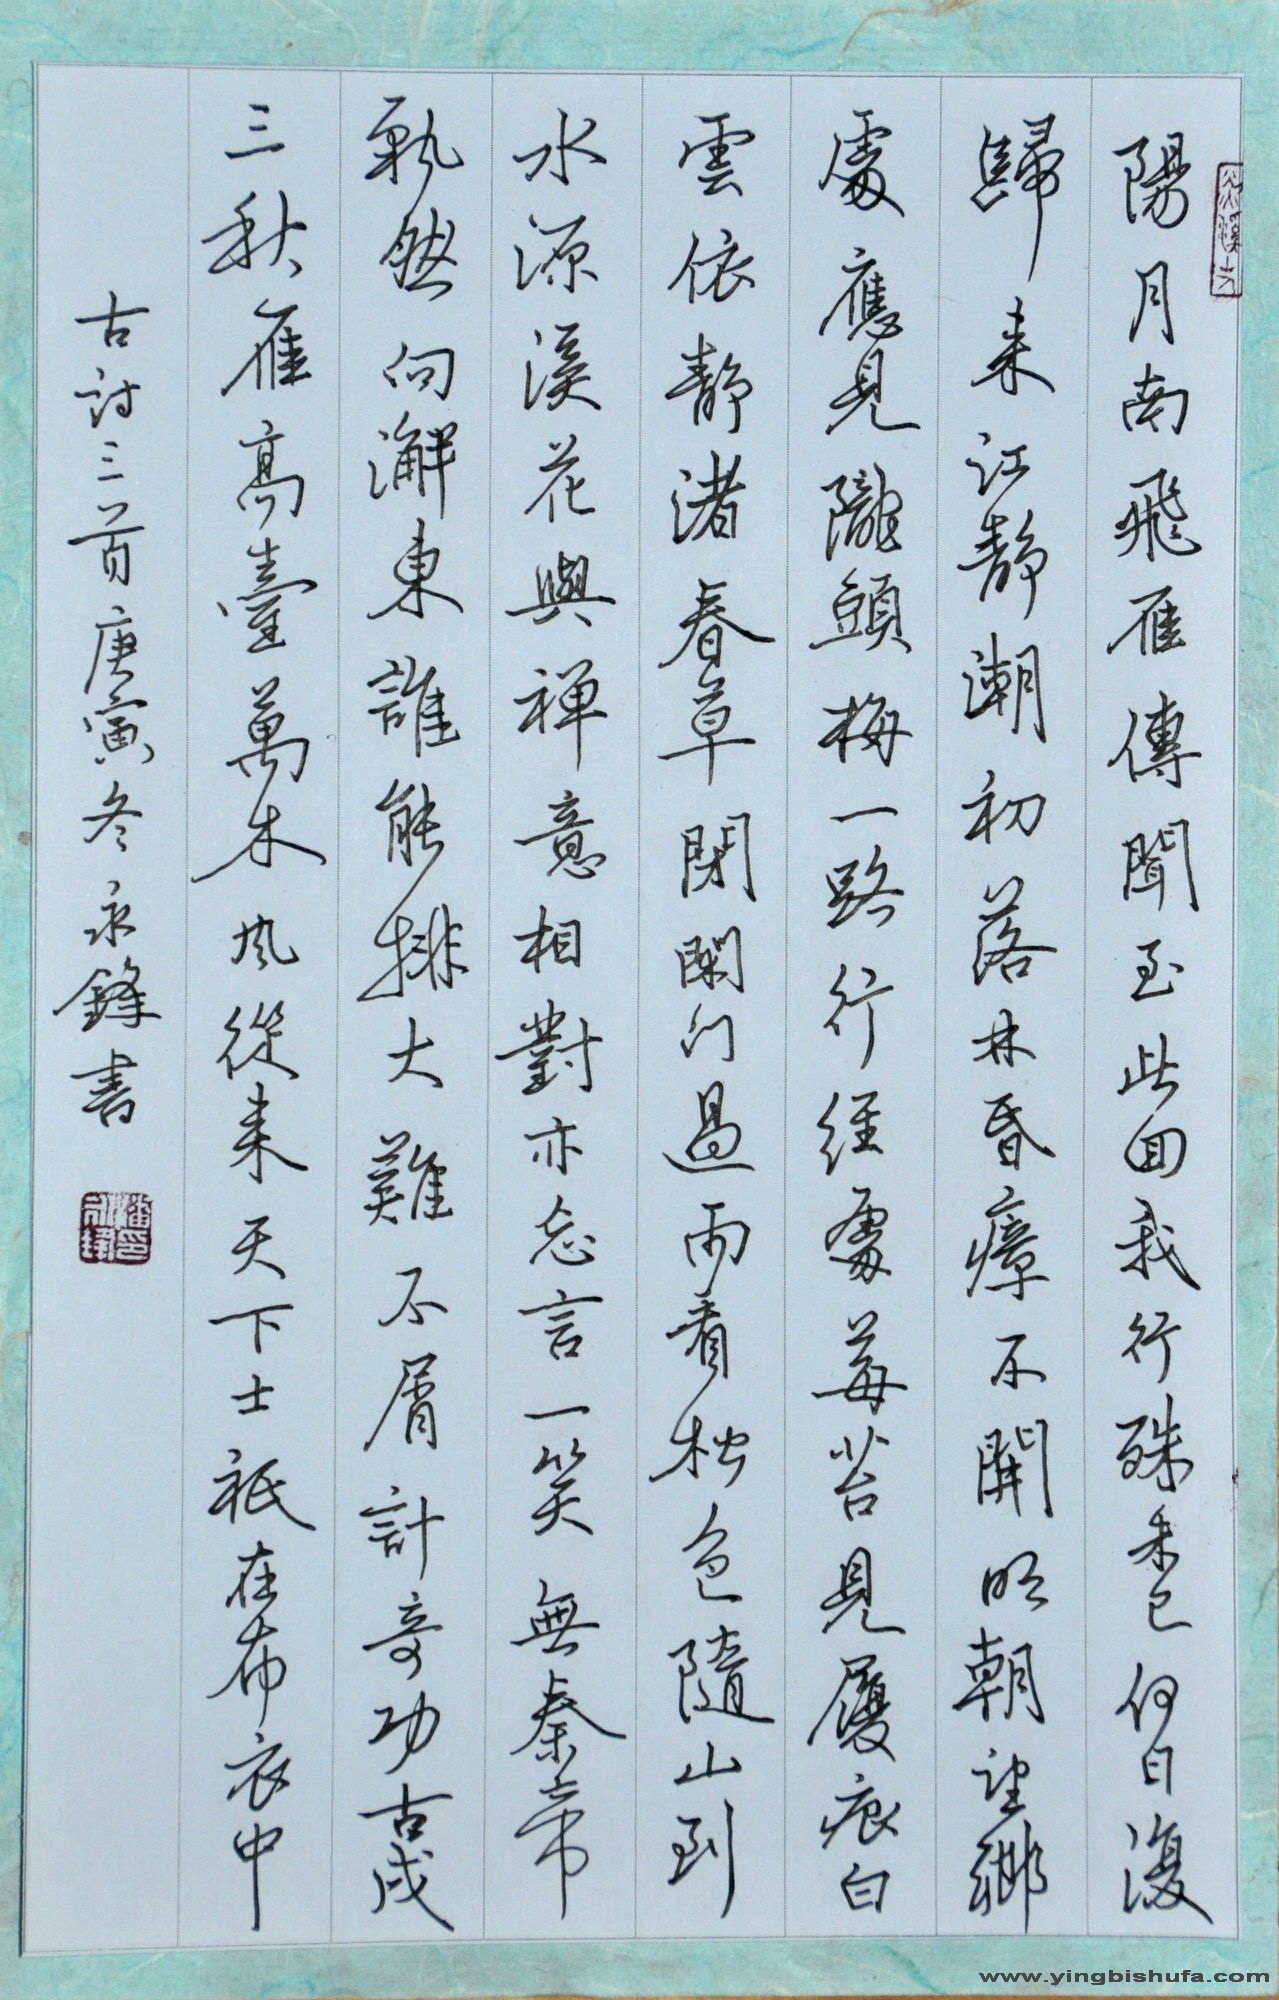 陽月南飛雁傳聞至此回我行殊未已何日復
歸來江静潮初落林昏瘴不開明朝望鄉
處應見隴頭梅一路行經處莓苔見履痕白
雲依静渚春草閉閑门過雨看松色隨山到
水源溪花與禅意相對亦忘言一笑無秦帝
飄然向澥東誰能排大難不屑計奇功古戍
三秋雁高臺萬木风從来天下士祇在布衣中
古诗三首庚寅冬永鋒書
www.yingbishufa.com